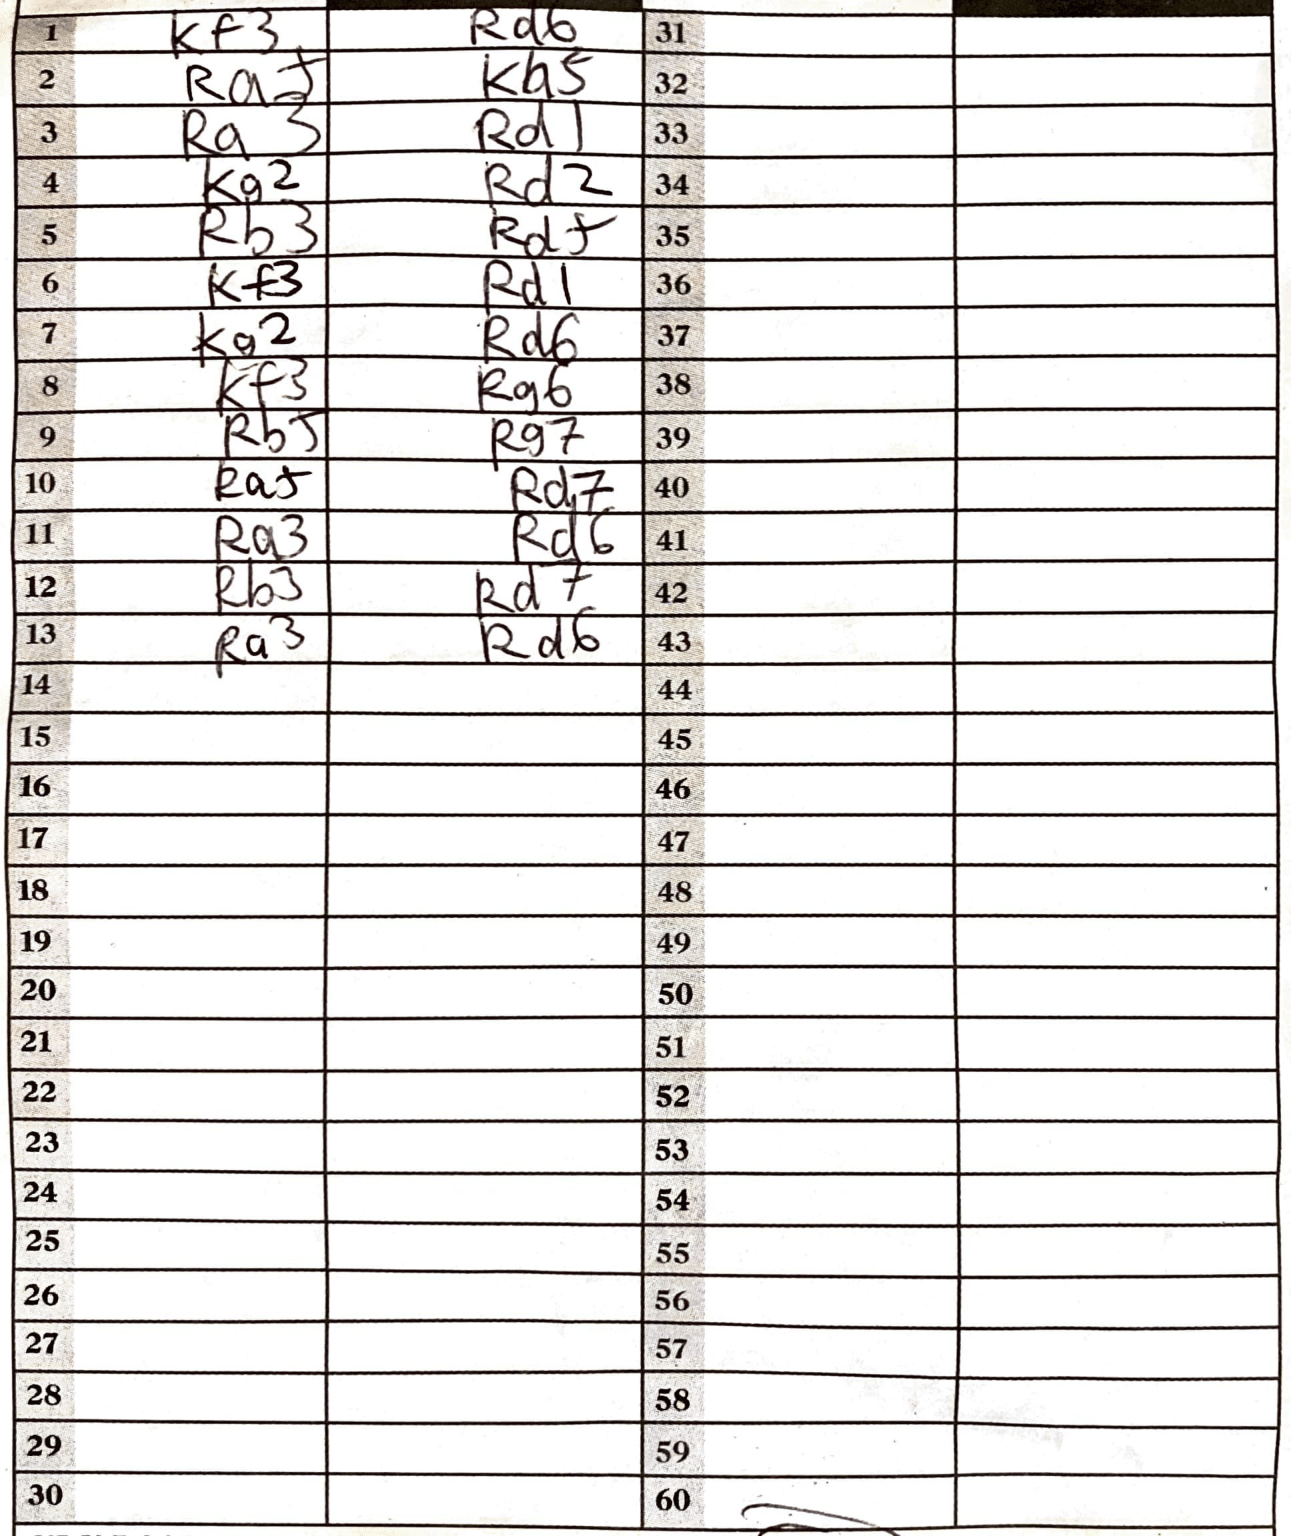 1 Kf3 Rd6 31
2 Ra5 Kh5 32
3 Ra3 Rd1 33
4 Kg2 Rd2 34
5 Rb3 Rd5 35
6 Kf3 Rd1 36
7 Kg2 Rd6 37
8 Kf3 Rg6 38
9 Rb5 Rg7 39
10 Ra5 Rd7 40
11 Ra3 Rd6 41
12 Rb3 Rd7 42
13 Ra3 Rd6 43
14 44
15 45
16 46
17 47
18 48
19 49
20 50
21 51
22 52
23 53
24 54
25 55
26 56
27 57
28 58
29 59
30 60